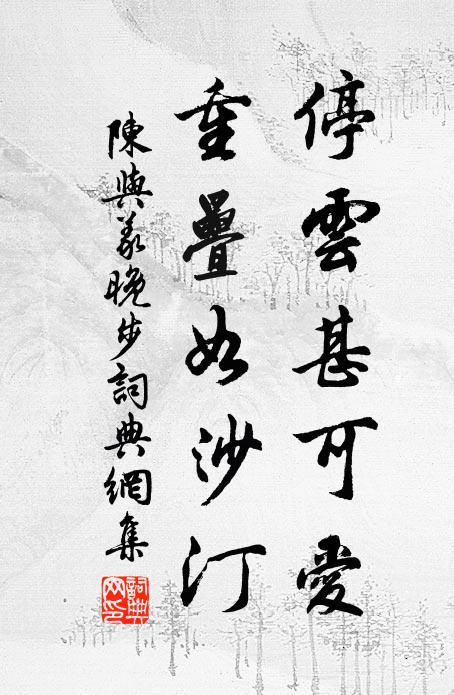 停雲甚可愛
重疊如沙汀
陳與義晚步詞典網集
詞典網印